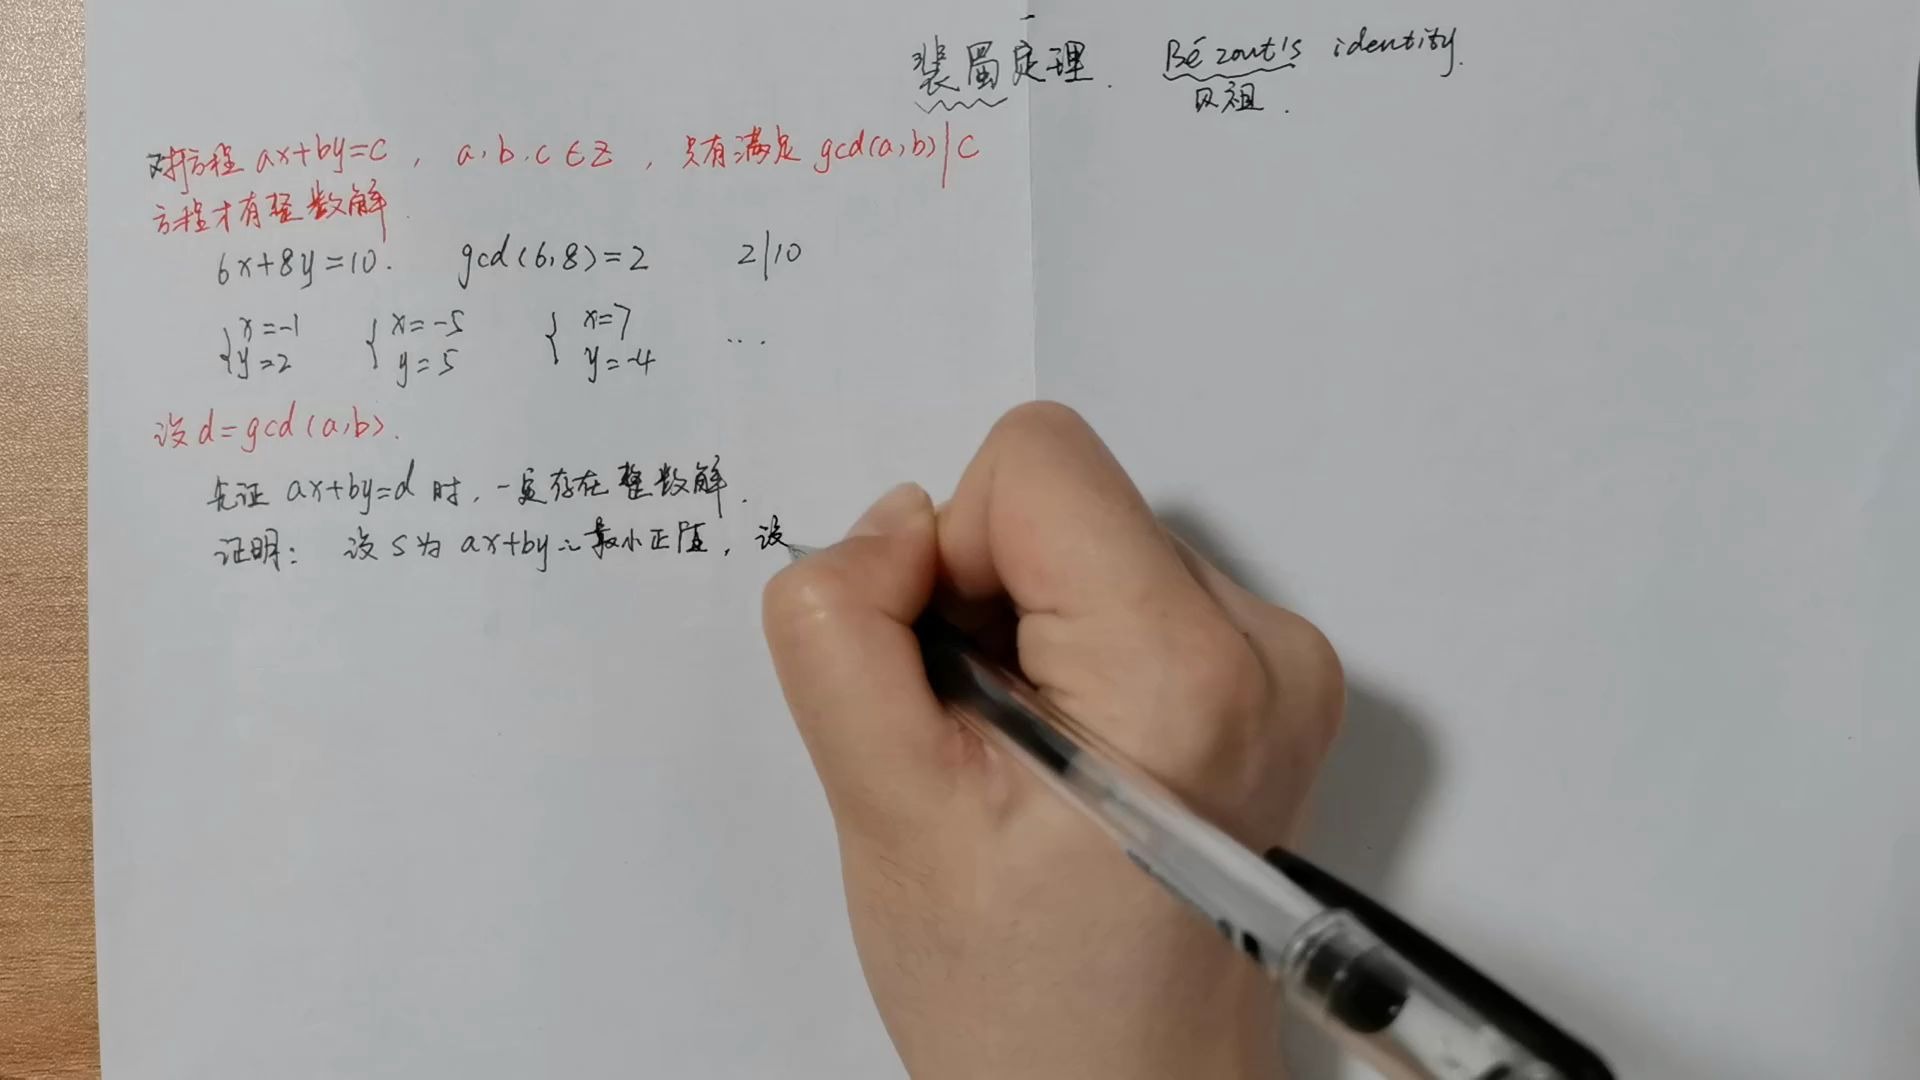 裴蜀定理. Bézout's identity.
贝祖.
对方程 ax+by=c, a,b,c∈Z, 只有满足 gcd(a,b)|c
方程才有整数解.
6x+8y=10. gcd(6,8)=2 2|10
{x=-1 {x=-5 {x=7 ...
y=2 y=5 y=-4
设 d=gcd(a,b).
先证 ax+by=d 时, 一定存在整数解.
证明: 设 s 为 ax+by 之最小正值, 设